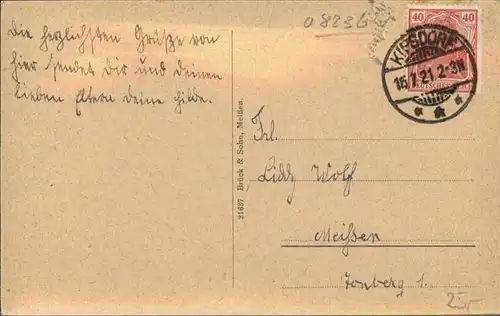 08236
40 40
KIPSDORF
16.7.21. 2-3N
Die herzlichsten Grüsze von
hier sendet Dir und Deinen
lieben Eltern Deine Hilde.
21637 Brück & Sohn, Meißen.
Frl.
Liddy Wolf
Meissen
1.
25,-